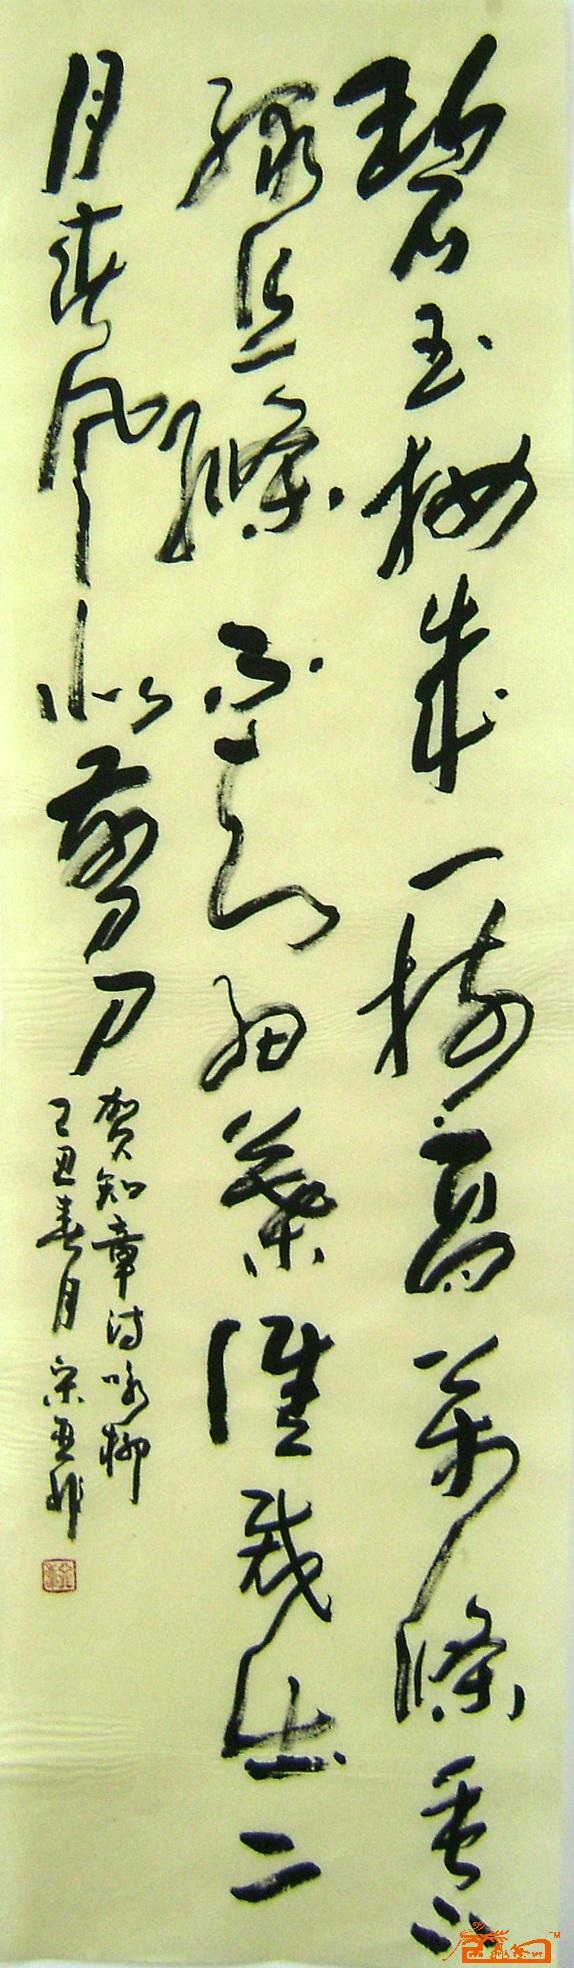 碧玉妆成一树高萬條垂下
绿丝縧不知细葉谁裁出二
月春风似剪刀
贺知章诗咏柳
己丑春月宋亚非